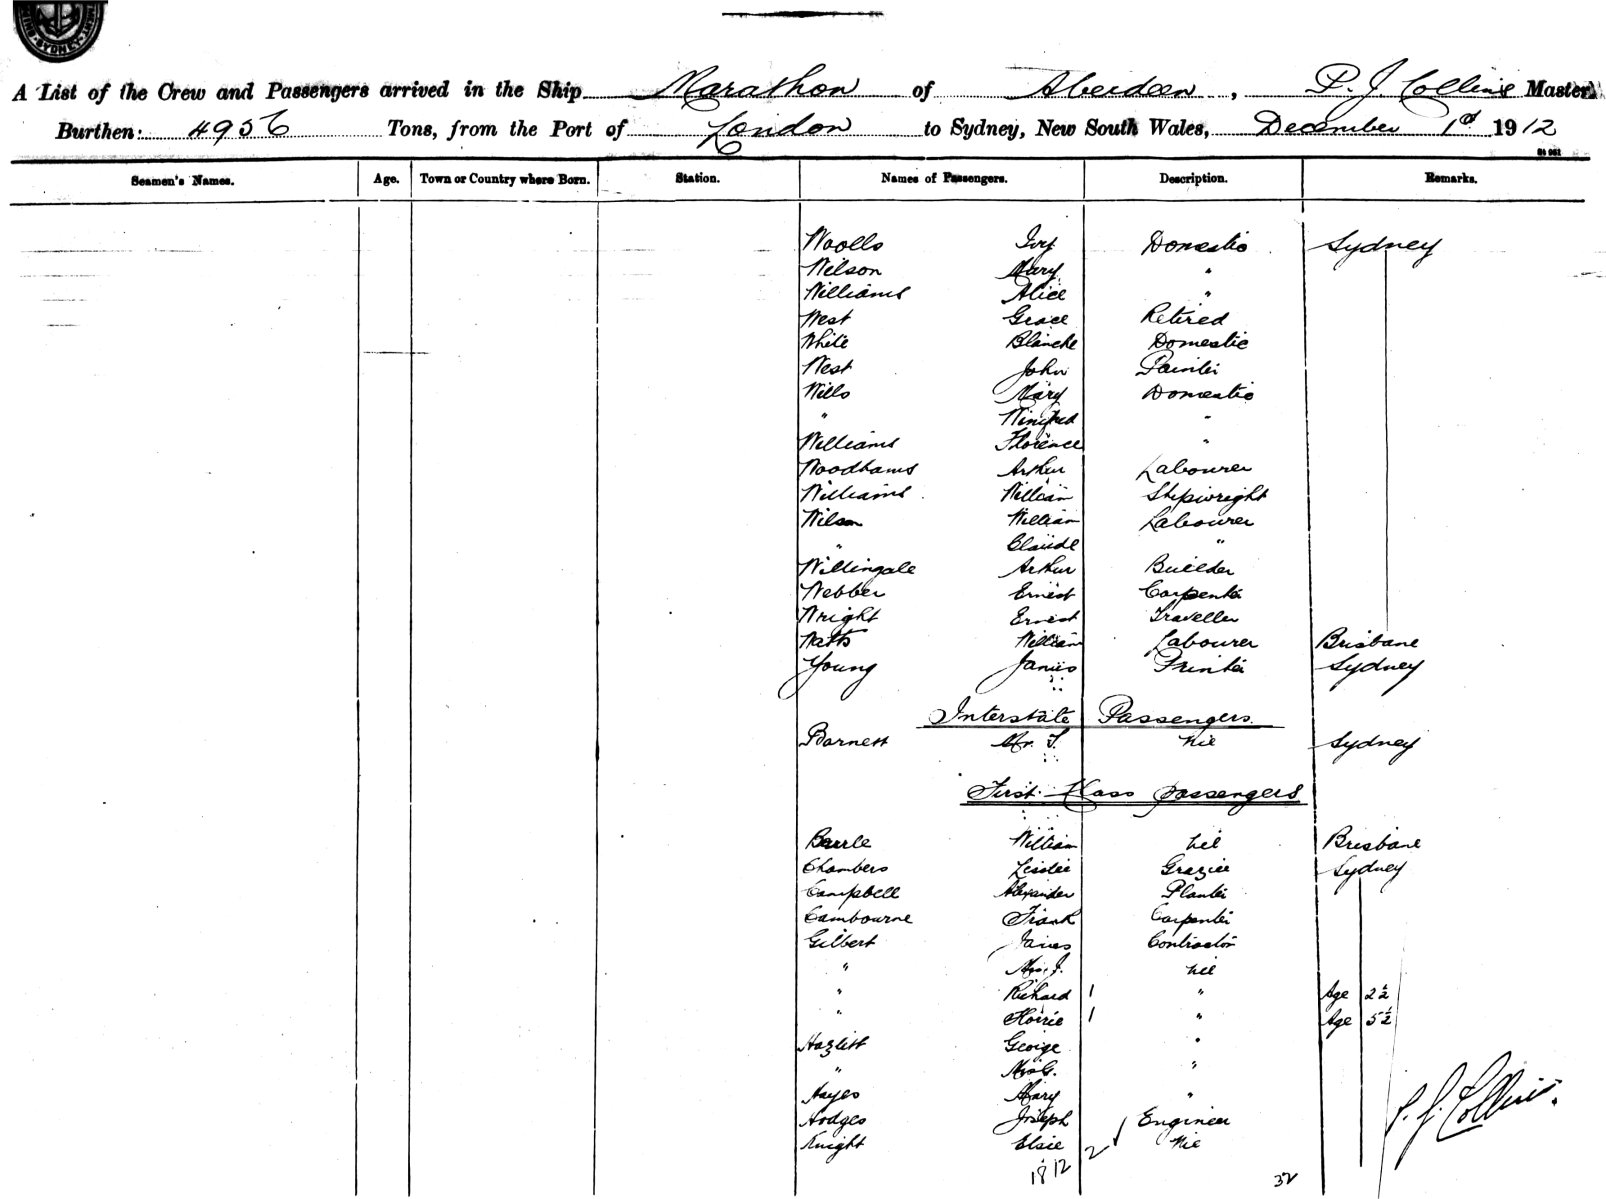 SYDNEY
A List of the Crew and Passengers arrived in the Ship Marathon of Aberdeen, P. J. Collins Master
Burthen: 4956 Tons, from the Port of London to Sydney, New South Wales, December 1st 1912
Seamen's Names. Age. Town or Country where Born. Station. Names of Passengers. Description. Remarks.
Woolls Ivy Domestic Sydney
Wilson Mary "
Williams Alice "
West Grace Retired
White Blanche Domestic
West John Painter
Wills Mary Domestic
" Winifred "
Williams Florence "
Woodhams Arthur Labourer
Williams William Shipwright
Wilson William Labourer
" Claude "
Willingale Arthur Builder
Webber Ernest Carpenter
Wright Ernest Traveller
Watts William Labourer Brisbane
Young James Printer Sydney
Interstate Passengers
Barnett Mr. T. Nil Sydney
First Class Passengers
William Nil Brisbane
Chambers Leslie Grazier Sydney
Campbell Alexander Planter
Cambourne Frank Carpenter
Gilbert James Contractor
" Mrs. J. Nil
" Richard 1 " Age 2½
" Horrie 1 " Age 5½
Hazlitt George "
" Mrs G. "
Hayes Mary "
Hodges Joseph Engineer
Knight Elsie 2 Nil
18 12 32
P. J. Collins.